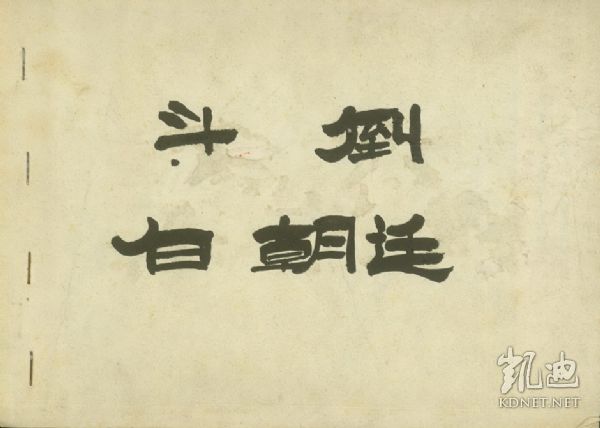 斗 倒
白 朝廷
凯迪
KDNET.NET